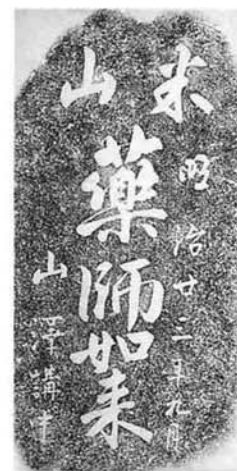 米山
明治廿三年九月
藥師如来
山澤講中